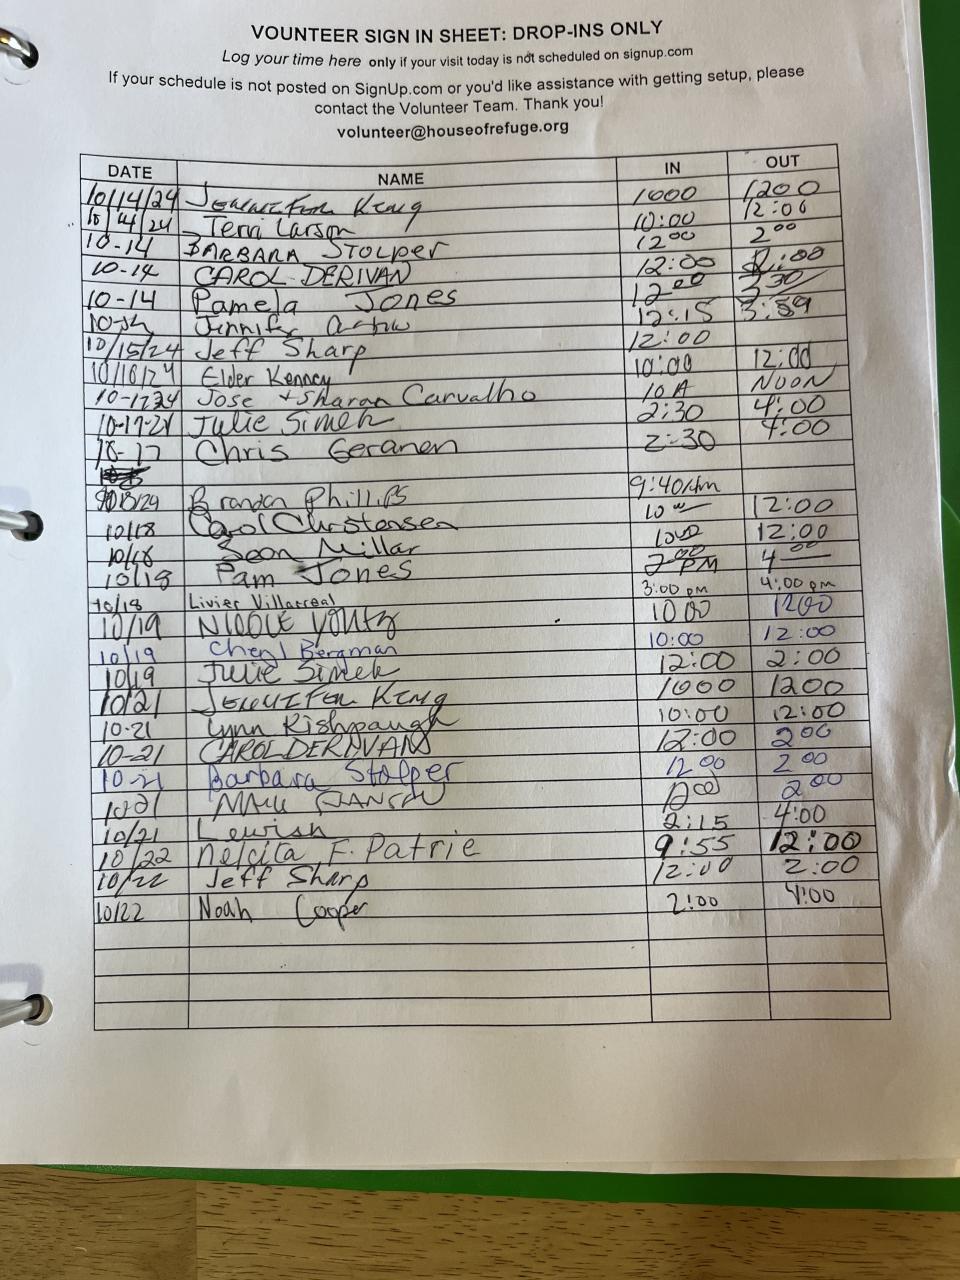 VOUNTEER SIGN IN SHEET: DROP-INS ONLY
Log your time here only if your visit today is not scheduled on signup.com
If your schedule is not posted on SignUp.com or you'd like assistance with getting setup, please
contact the Volunteer Team. Thank you!
volunteer@houseofrefuge.org
DATE NAME IN OUT
10/14/24 Jennifer King 1000 1200
10/14/24 Terri Larson 10:00 12:00
10-14 BARBARA STOLPER 12 00 2 00
10-14 CAROL DERIVAN 12:00 2:00
10-14 Pamela Jones 12 00 3 30
Jennifer 12:15 3:59
10/15/24 Jeff Sharp 12:00
10/16/24 Elder Kenney 10:00 12:00
10-17-24 Jose + Sharon Carvalho 10 A NOON
10-17-24 Julie Simek 2:30 4:00
10-17 Chris Geranen 2:30 4:00
10/18/24 Brandon Phillips 9:40 Am
10/18 Carol Christensen 10 00 12:00
10/18 Sean Millar 1000 12:00
10/18 Pam Jones 2:00 PM 4 00
10/18 Livier Villarreal 3:00 pm 4:00 pm
10/19 NICOLE YOUTZ 10 00 1200
10/19 Cheryl Bergman 10:00 12:00
10/19 Julie Simek 12:00 2:00
10/21 Jennifer King 1000 1200
10-21 Lynn Kishpaugh 10:00 12:00
10-21 CAROL DERIVAN 12:00 2 00
10-21 Barbara Stolper 12 00 2 00
10/21 12 00 2 00
10/21 Lewish 2:15 4:00
10/22 Nelcita F. Patrie 9:55 12:00
10/22 Jeff Sharp 12:00 2:00
10/22 Noah Cooper 2:00 4:00